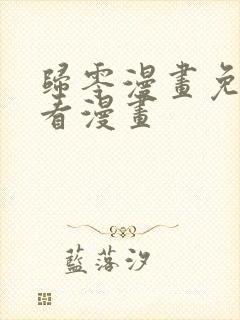 歸零漫畫免
看漫畫
藍落汐